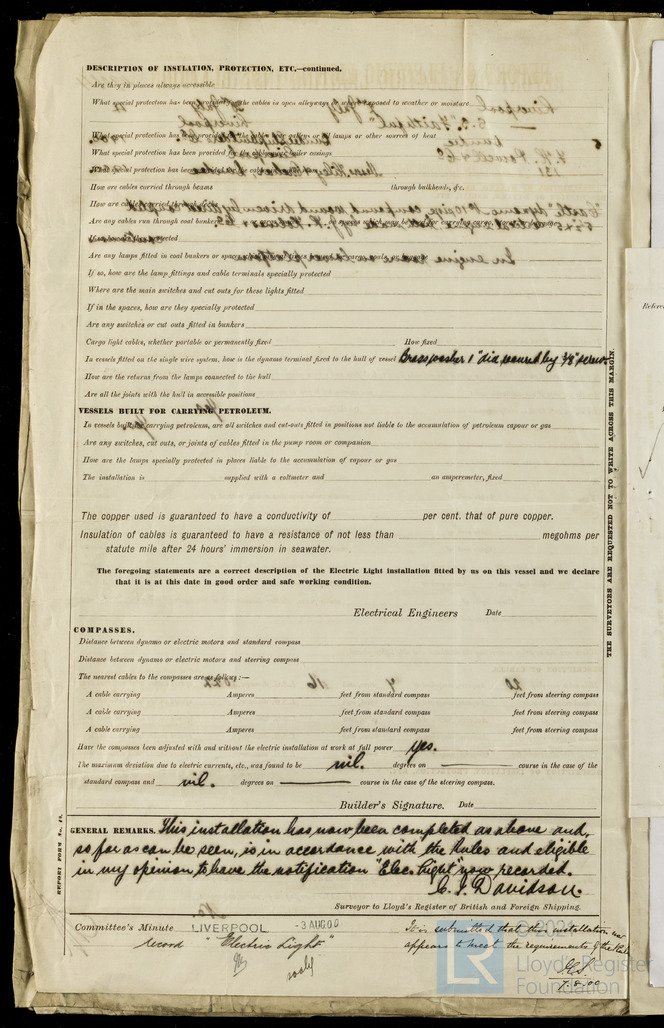 DESCRIPTION OF INSULATION, PROTECTION, ETC.—continued.
Are they in places always accessible
What special protection has been provided for the cables in open alleyways or where exposed to weather or moisture
What special protection has been provided for the cables near galleys or oil lamps or other sources of heat
What special protection has been provided for the cables near boiler casings
What special protection has been provided for the cables
How are cables carried through beams through bulkheads, &c.
How are cables carried through decks
Are any cables run through coal bunkers
protected
Are any lamps fitted in coal bunkers or spaces
If so, how are the lamp fittings and cable terminals specially protected
Where are the main switches and cut outs for these lights fitted
If in the spaces, how are they specially protected
Are any switches or cut outs fitted in bunkers
Cargo light cables, whether portable or permanently fixed How fixed
In vessels fitted on the single wire system, how is the dynamo terminal fixed to the hull of vessel Brass washer 1" dia secured by 3/8" screw
How are the returns from the lamps connected to the hull
Are all the joints with the hull in accessible positions
VESSELS BUILT FOR CARRYING PETROLEUM.
In vessels built for carrying petroleum, are all switches and cut-outs fitted in positions not liable to the accumulation of petroleum vapour or gas
Are any switches, cut outs, or joints of cables fitted in the pump room or companion
How are the lamps specially protected in places liable to the accumulation of vapour or gas
The installation is supplied with a voltmeter and an amperemeter, fixed
The copper used is guaranteed to have a conductivity of per cent. that of pure copper.
Insulation of cables is guaranteed to have a resistance of not less than megohms per
statute mile after 24 hours' immersion in seawater.
The foregoing statements are a correct description of the Electric Light installation fitted by us on this vessel and we declare
that it is at this date in good order and safe working condition.
Electrical Engineers Date
COMPASSES.
Distance between dynamo or electric motors and standard compass
Distance between dynamo or electric motors and steering compass
The nearest cables to the compasses are as follows :—
A cable carrying Amperes feet from standard compass feet from steering compass
A cable carrying Amperes feet from standard compass feet from steering compass
A cable carrying Amperes feet from standard compass feet from steering compass
Have the compasses been adjusted with and without the electric installation at work at full power yes.
The maximum deviation due to electric currents, etc., was found to be nil. degrees on course in the case of the
standard compass and nil. degrees on course in the case of the steering compass.
Builder's Signature. Date
GENERAL REMARKS. This installation has now been completed as above and,
so far as can be seen, is in accordance with the Rules and eligible
in my opinion to have the notification "Elec. Light" now recorded.
C. J. Davidson.
Surveyor to Lloyd's Register of British and Foreign Shipping.
Committee's Minute LIVERPOOL -3 AUG 00
record "Electric Light"
It is submitted that this installation now
appears to meet the requirements of the Rules
7.8.00
THE SURVEYORS ARE REQUESTED NOT TO WRITE ACROSS THIS MARGIN.
REPORT FORM No. 41.
Refere
© 2021
LR
Lloyd's Register
Foundation